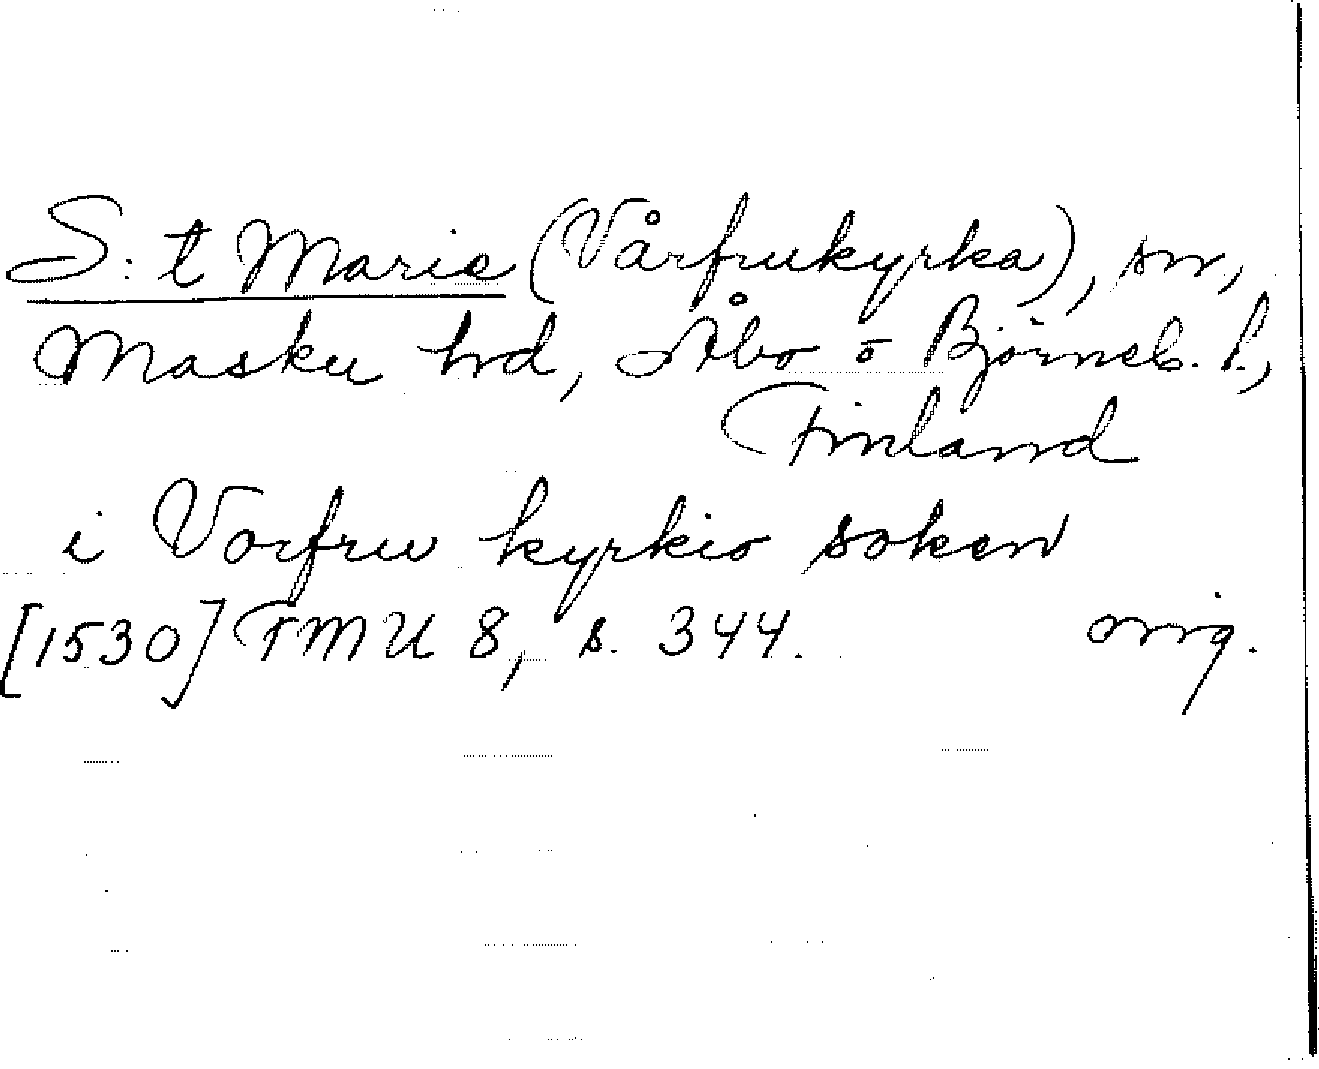 S:t Marie (Vårfrukyrka), sn,
Masku hd, Åbo o Björneb. l.,
Finland
i Vorfrw kyrkio soken
[1530] FMU 8, s. 344. orig.